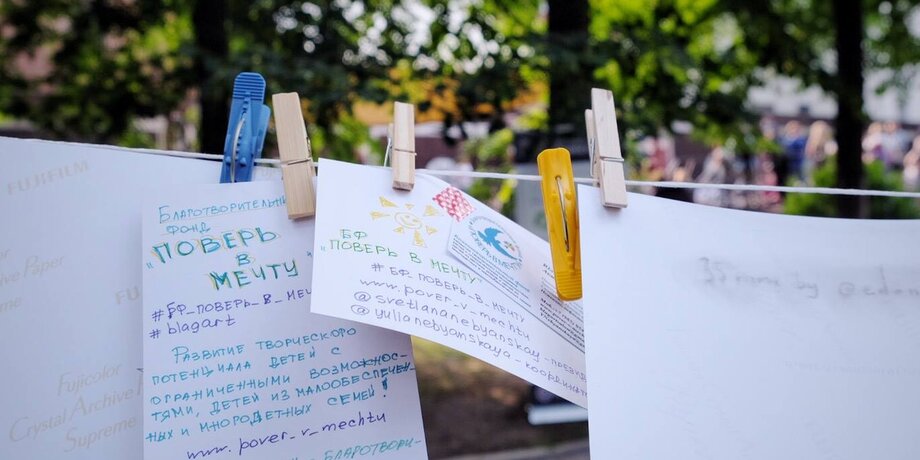 FUJIFILM
Archive Paper
Supreme
FUJ
Fujicolor
Crystal Archive P
Supreme
БЛАГОТВОРИТЕЛЬН
ФОНД
"ПОВЕРЬ
В
МЕЧТУ"
#БФ_ПОВЕРЬ_В_МЕЧ
#blagart
РАЗВИТИЕ ТВОРЧЕСКОГО
ПОТЕНЦИАЛА ДЕТЕЙ С
ОГРАНИЧЕННЫМИ ВОЗМОЖНОС-
ТЯМИ, ДЕТЕЙ ИЗ МАЛООБЕСПЕЧЕН-
НЫХ И МНОГОДЕТНЫХ СЕМЕЙ!
www.pover_v_mechtu
БЛАГОТВОРИ-
БФ
"ПОВЕРЬ В МЕЧТУ"
#БФ_ПОВЕРЬ_В_МЕЧТУ
www.pover-v-mechtu
@svetlananebyanskay-прези
@yulianebyanskaya-координат
by @eda